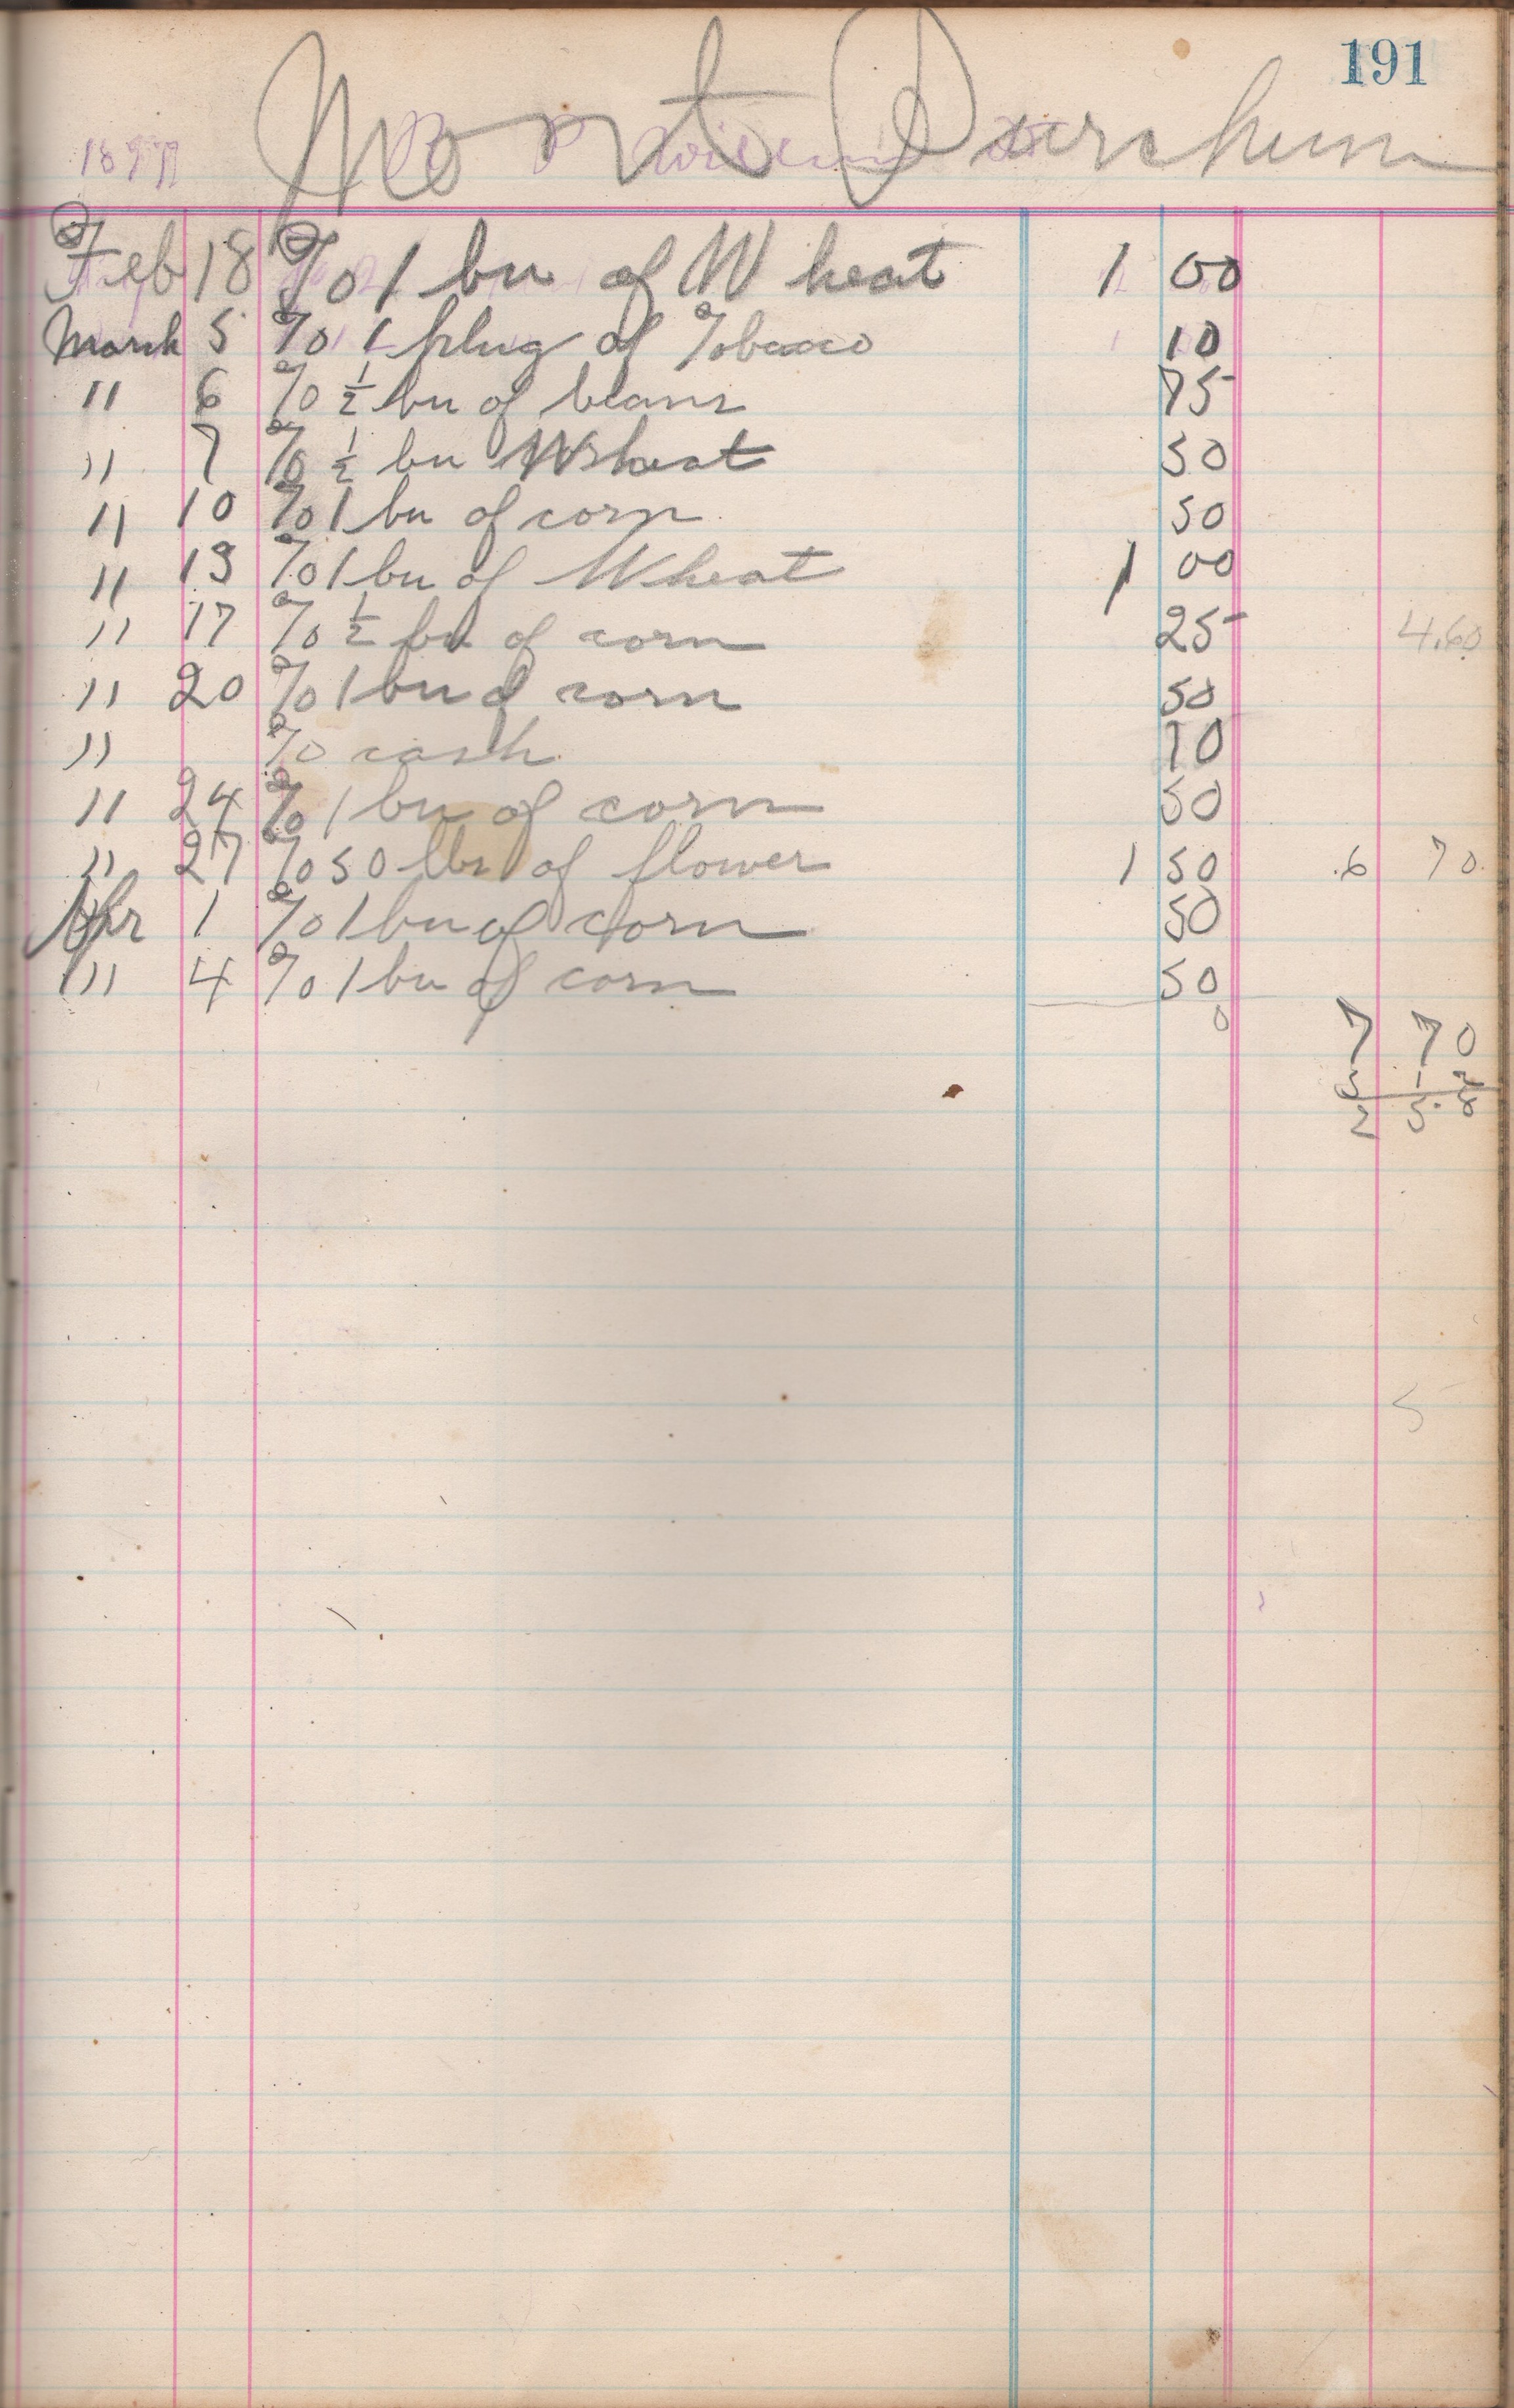 191
Mort Durchum
1897
Feb 18 To 1 bu of Wheat 1 00
March 5 To 1 plug of Tobacco 10
" 6 To ½ bu of beans 75
" 7 To ½ bu Wheat 50
" 10 To 1 bu of corn 50
" 13 To 1 bu of Wheat 1 00
" 17 To ½ bu of corn 25 4.60
" 20 To 1 bu of corn 50
" To cash 10
" 24 To 1 bu of corn 50
" 27 To 50 lbs of flower 1 50 6 70
Apr 1 To 1 bu of corn 50
" 4 To 1 bu of corn 50
7 70
5